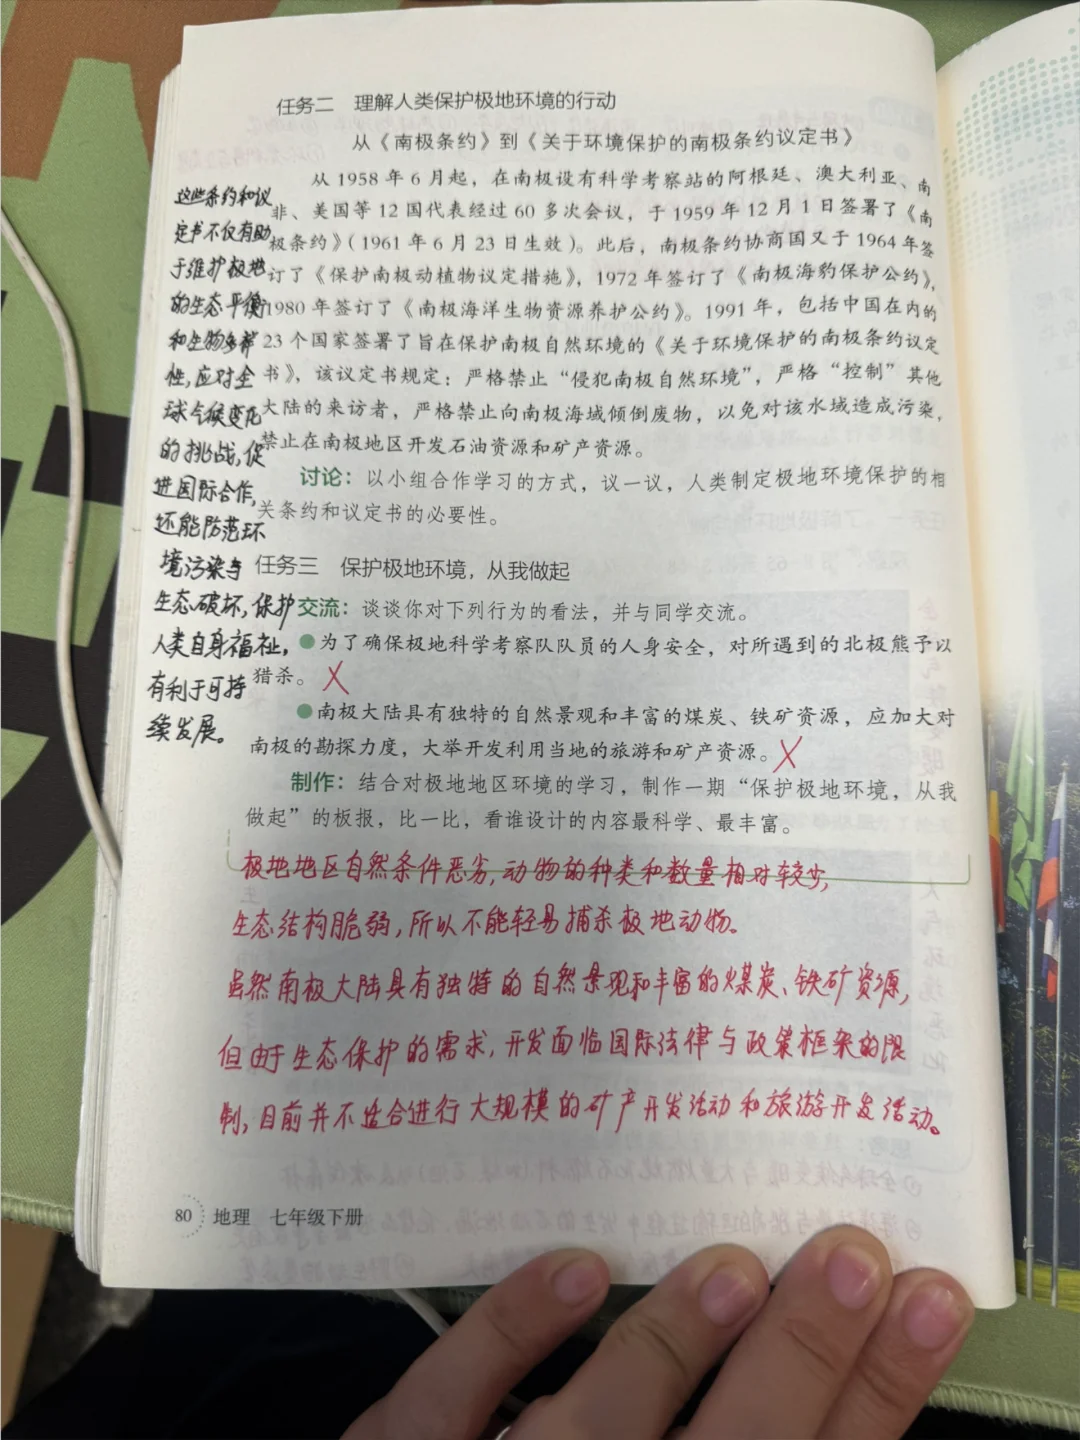 任务二 理解人类保护极地环境的行动
从《南极条约》到《关于环境保护的南极条约议定书》
从 1958 年 6 月起，在南极设有科学考察站的阿根廷、澳大利亚、南
非、美国等 12 国代表经过 60 多次会议，于 1959 年 12 月 1 日签署了《南
极条约》（1961 年 6 月 23 日生效）。此后，南极条约协商国又于 1964 年签
订了《保护南极动植物议定措施》，1972 年签订了《南极海豹保护公约》，
1980 年签订了《南极海洋生物资源养护公约》。1991 年，包括中国在内的
23 个国家签署了旨在保护南极自然环境的《关于环境保护的南极条约议定
书》，该议定书规定：严格禁止“侵犯南极自然环境”，严格“控制”其他
大陆的来访者，严格禁止向南极海域倾倒废物，以免对该水域造成污染，
禁止在南极地区开发石油资源和矿产资源。
讨论：以小组合作学习的方式，议一议，人类制定极地环境保护的相
关条约和议定书的必要性。
这些条约和议
定书不仅有助
于维护极地
的生态平衡
和生物多样
性，应对全
球气候变化
的挑战，促
进国际合作，
还能防范环
境污染与
生态破坏，保护
人类自身福祉，
有利于可持
续发展。
任务三 保护极地环境，从我做起
交流：谈谈你对下列行为的看法，并与同学交流。
●为了确保极地科学考察队队员的人身安全，对所遇到的北极熊予以
猎杀。 X
●南极大陆具有独特的自然景观和丰富的煤炭、铁矿资源，应加大对
南极的勘探力度，大举开发利用当地的旅游和矿产资源。 X
制作：结合对极地地区环境的学习，制作一期“保护极地环境，从我
做起”的板报，比一比，看谁设计的内容最科学、最丰富。
极地地区自然条件恶劣，动物的种类和数量相对较少，
生态结构脆弱，所以不能轻易捕杀极地动物。
虽然南极大陆具有独特的自然景观和丰富的煤炭、铁矿资源，
但由于生态保护的需求，开发面临国际法律与政策框架的限
制，目前并不适合进行大规模的矿产开发活动和旅游开发活动。
80 地理 七年级下册